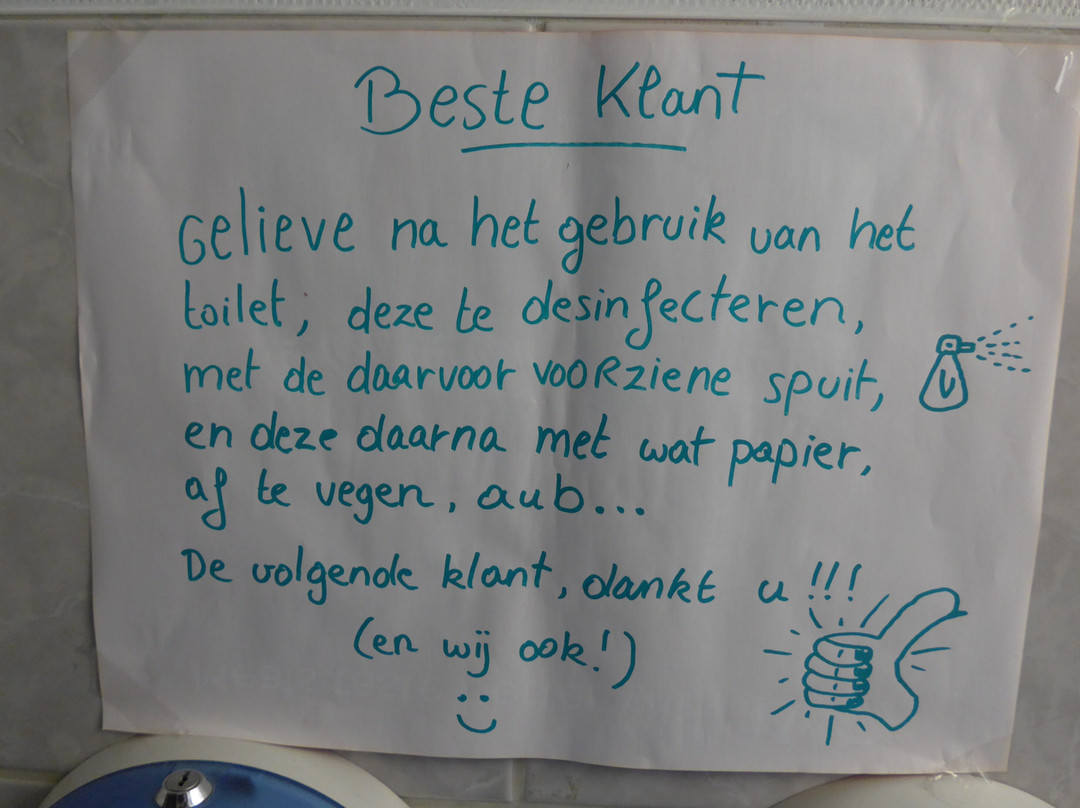 Beste Klant
Gelieve na het gebruik van het
toilet, deze te desinfecteren,
met de daarvoor vooRziene spuit,
en deze daarna met wat papier,
af te vegen, aub...
De volgende klant, dankt u!!!
(en wij ook!)